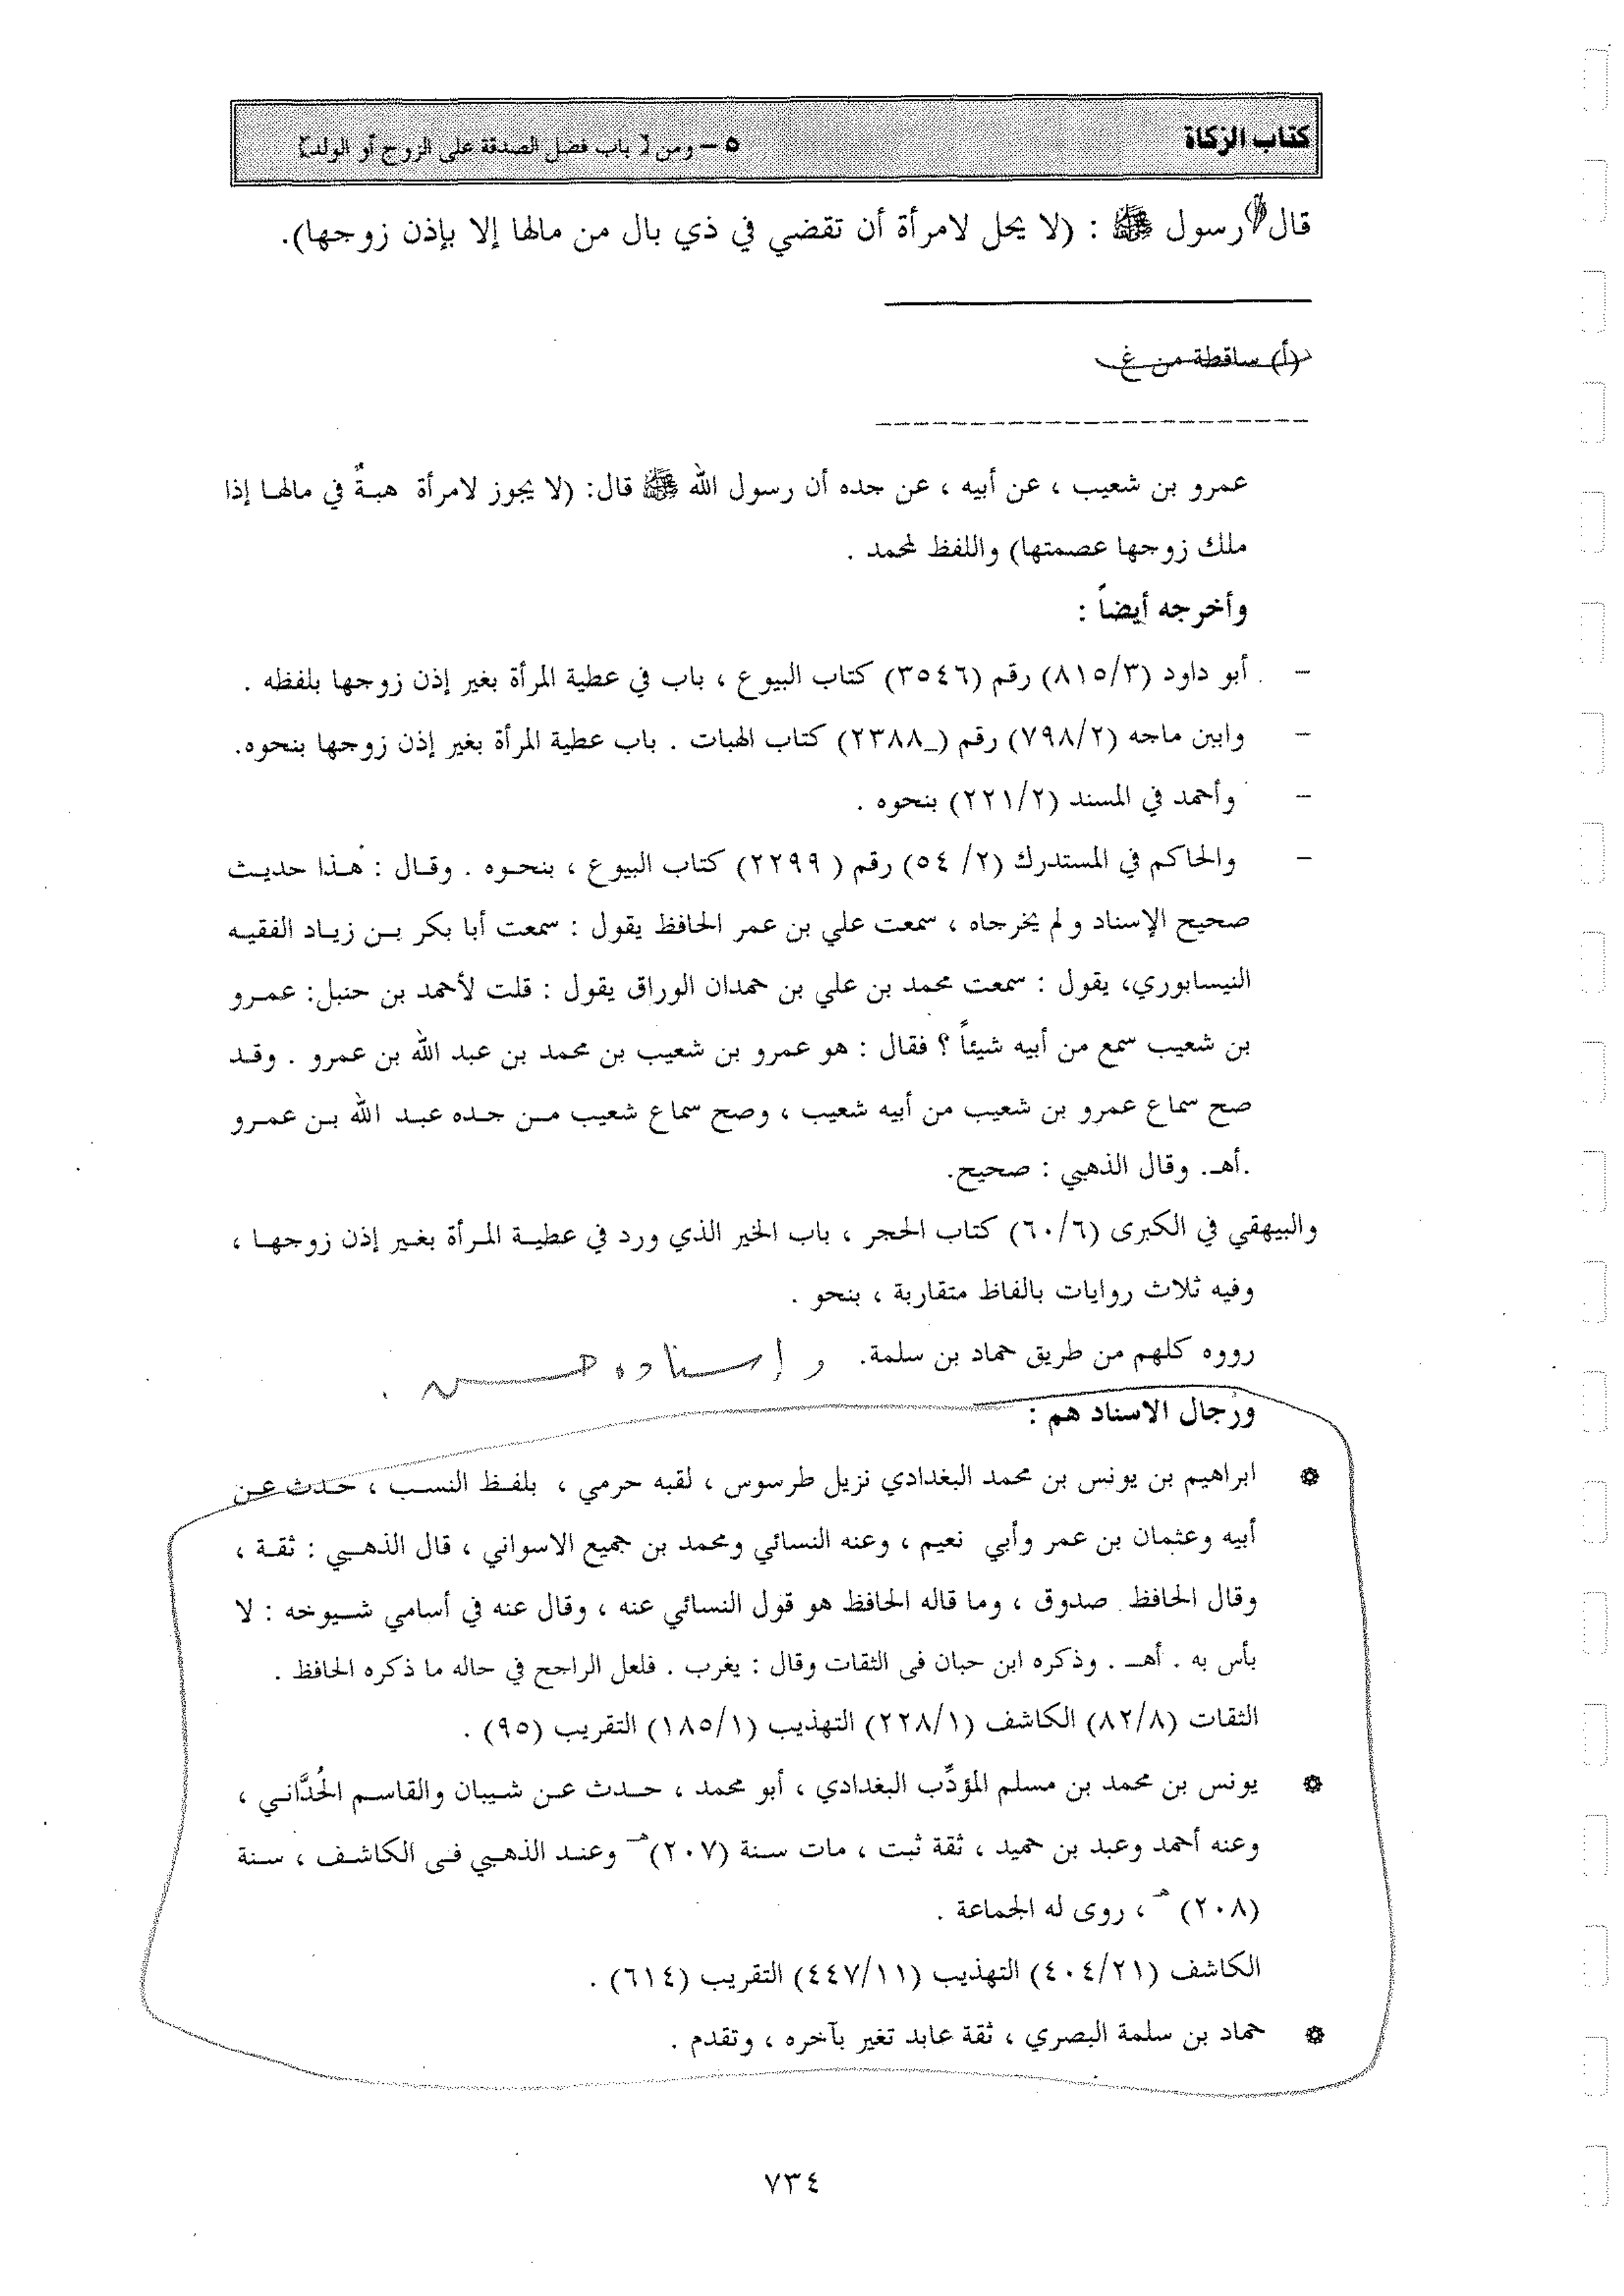 كتاب الزكاة ٥ – ومن [ باب فضل الصدقة على الزوج أو الولد]
قال رسول ﷺ : (لا يحل لامرأة أن تقضي في ذي بال من مالها إلا بإذن زوجها).
(أ) ساقطة من غ
عمرو بن شعيب ، عن أبيه ، عن جده أن رسول الله ﷺ قال: (لا يجوز لامرأة هبةٌ في مالها إذا
ملك زوجها عصمتها) واللفظ لمحمد .
وأخرجه أيضاً :
– أبو داود (٨١٥/٣) رقم (٣٥٤٦) كتاب البيوع ، باب في عطية المرأة بغير إذن زوجها بلفظه .
– وابن ماجه (٧٩٨/٢) رقم (_٢٣٨٨) كتاب الهبات . باب عطية المرأة بغير إذن زوجها بنحوه.
– وأحمد في المسند (٢٢١/٢) بنحوه .
– والحاكم في المستدرك (٢/ ٥٤) رقم ( ٢٢٩٩) كتاب البيوع ، بنحوه . وقال : هذا حديث
صحيح الإسناد و لم يخرجاه ، سمعت علي بن عمر الحافظ يقول : سمعت أبا بكر بن زياد الفقيه
النيسابوري، يقول : سمعت محمد بن علي بن حمدان الوراق يقول : قلت لأحمد بن حنبل: عمرو
بن شعيب سمع من أبيه شيئاً ؟ فقال : هو عمرو بن شعيب بن محمد بن عبد الله بن عمرو . وقد
صح سماع عمرو بن شعيب من أبيه شعيب ، وصح سماع شعيب من جده عبد الله بن عمرو
.أهـ. وقال الذهبي : صحيح.
والبيهقي في الكبرى (٦٠/٦) كتاب الحجر ، باب الخير الذي ورد في عطية المرأة بغير إذن زوجها ،
وفيه ثلاث روايات بالفاظ متقاربة ، بنحو .
رووه كلهم من طريق حماد بن سلمة. و إسناده حسن .
ورجال الاسناد هم :
۞ ابراهيم بن يونس بن محمد البغدادي نزيل طرسوس ، لقبه حرمي ، بلفظ النسب ، حدث عن
أبيه وعثمان بن عمر وأبي نعيم ، وعنه النسائي ومحمد بن جميع الاسواني ، قال الذهبي : ثقة ،
وقال الحافظ صدوق ، وما قاله الحافظ هو قول النسائي عنه ، وقال عنه في أسامي شيوخه : لا
بأس به . أهـ . وذكره ابن حبان فى الثقات وقال : يغرب . فلعل الراجح في حاله ما ذكره الحافظ .
الثقات (٨٢/٨) الكاشف (٢٢٨/١) التهذيب (١٨٥/١) التقريب (٩٥) .
۞ يونس بن محمد بن مسلم المؤدِّب البغدادي ، أبو محمد ، حدث عن شيبان والقاسم الحُدَّاني ،
وعنه أحمد وعبد بن حميد ، ثقة ثبت ، مات سنة (٢٠٧) هـ وعند الذهبي فى الكاشف ، سنة
(٢٠٨) هـ ، روى له الجماعة .
الكاشف (٤٠٤/٢١) التهذيب (٤٤٧/١١) التقريب (٦١٤) .
۞ حماد بن سلمة البصري ، ثقة عابد تغير بآخره ، وتقدم .
٧٣٤